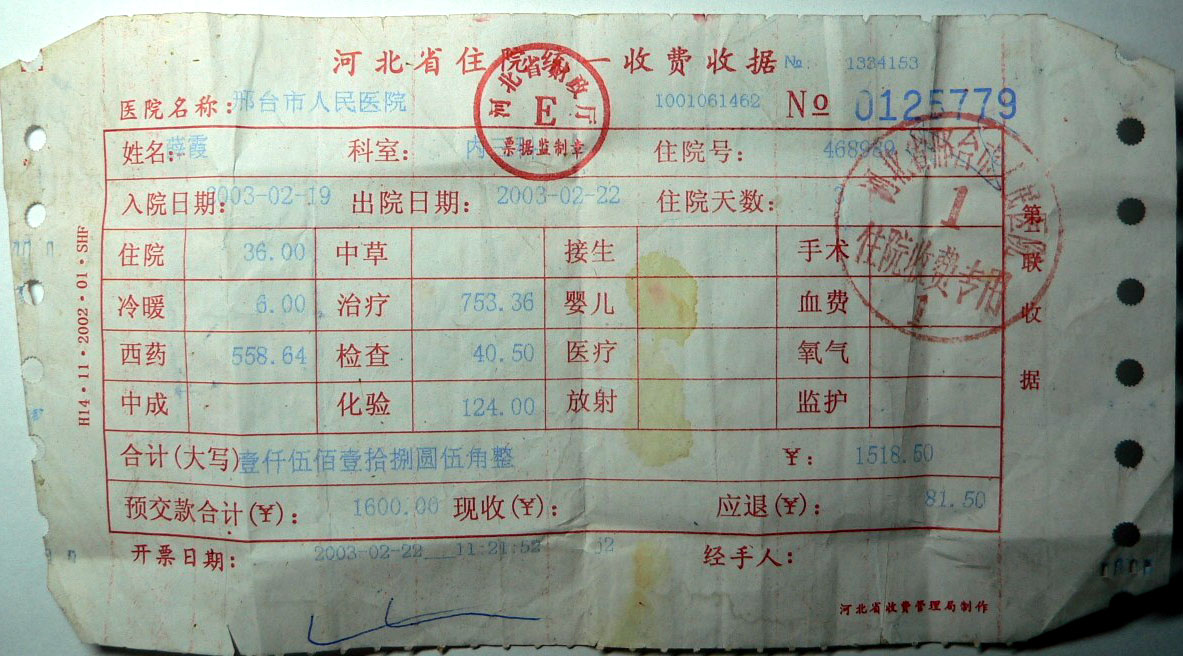 河北省住院统一收费收据 № 1324153
医院名称: 邢台市人民医院 1001061462 № 0125779
河北省财政厅
E
票据监制章
姓名: 薛霞 科室: 内三 住院号: 468989
入院日期: 2003-02-19 出院日期: 2003-02-22 住院天数: 3
住院 36.00 中草 接生 手术
冷暖 6.00 治疗 753.36 婴儿 血费
西药 558.64 检查 40.50 医疗 氧气
中成 化验 124.00 放射 监护
合计(大写) 壹仟伍佰壹拾捌圆伍角整 ¥: 1518.50
预交款合计(¥): 1600.00 现收(¥): 应退(¥): 81.50
开票日期: 2003-02-22 11:21:52 j2 经手人:
河北省收费管理局制作
H14·11·2002·01·SHF
联收据
河北省邢台市人民医院
1
住院收费专用
1